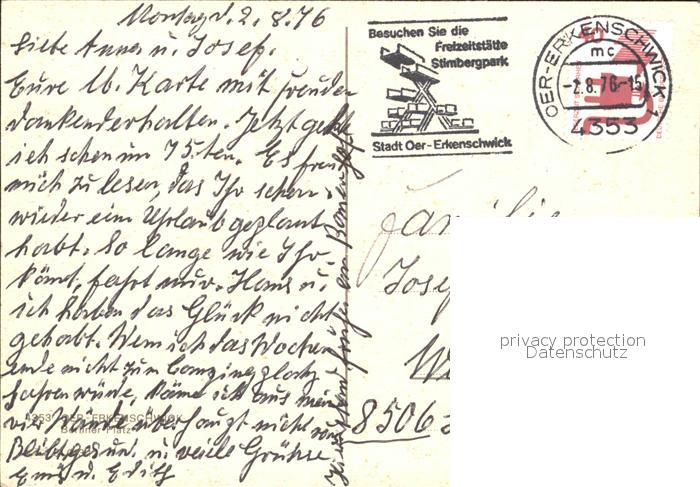 Montag d. 2. 8. 76
Liebe Anna u. Josef.
Eure lb. Karte mit Freuden
dankend erhalten. Jetzt geht
ich schon im 75.ten. Es freut
mich zu lesen, das Ihr schon
wieder ein Uhrlaub geplant
habt. So lange wie Ihr
könnt, fahrt nur. Hans u.
ich haben das Glück nicht
gehabt. Wenn ich das Wochen
ende nicht zum Campingplatz
fahren würde, käme ich aus mein
vier Wände überhaupt nicht raus
Bleibt gesund. u. viele Grühse
u. Edith
4353 OER-ERKENSCHWICK
Berliner Platz
Besuchen Sie die
Freizeitstätte
Stimbergpark
Stadt Oer-Erkenschwick
OER-ERKENSCHWICK 1
mc
-2.8.76-15
4353
Familie
Jose
W
8506
privacy protection
Datenschutz